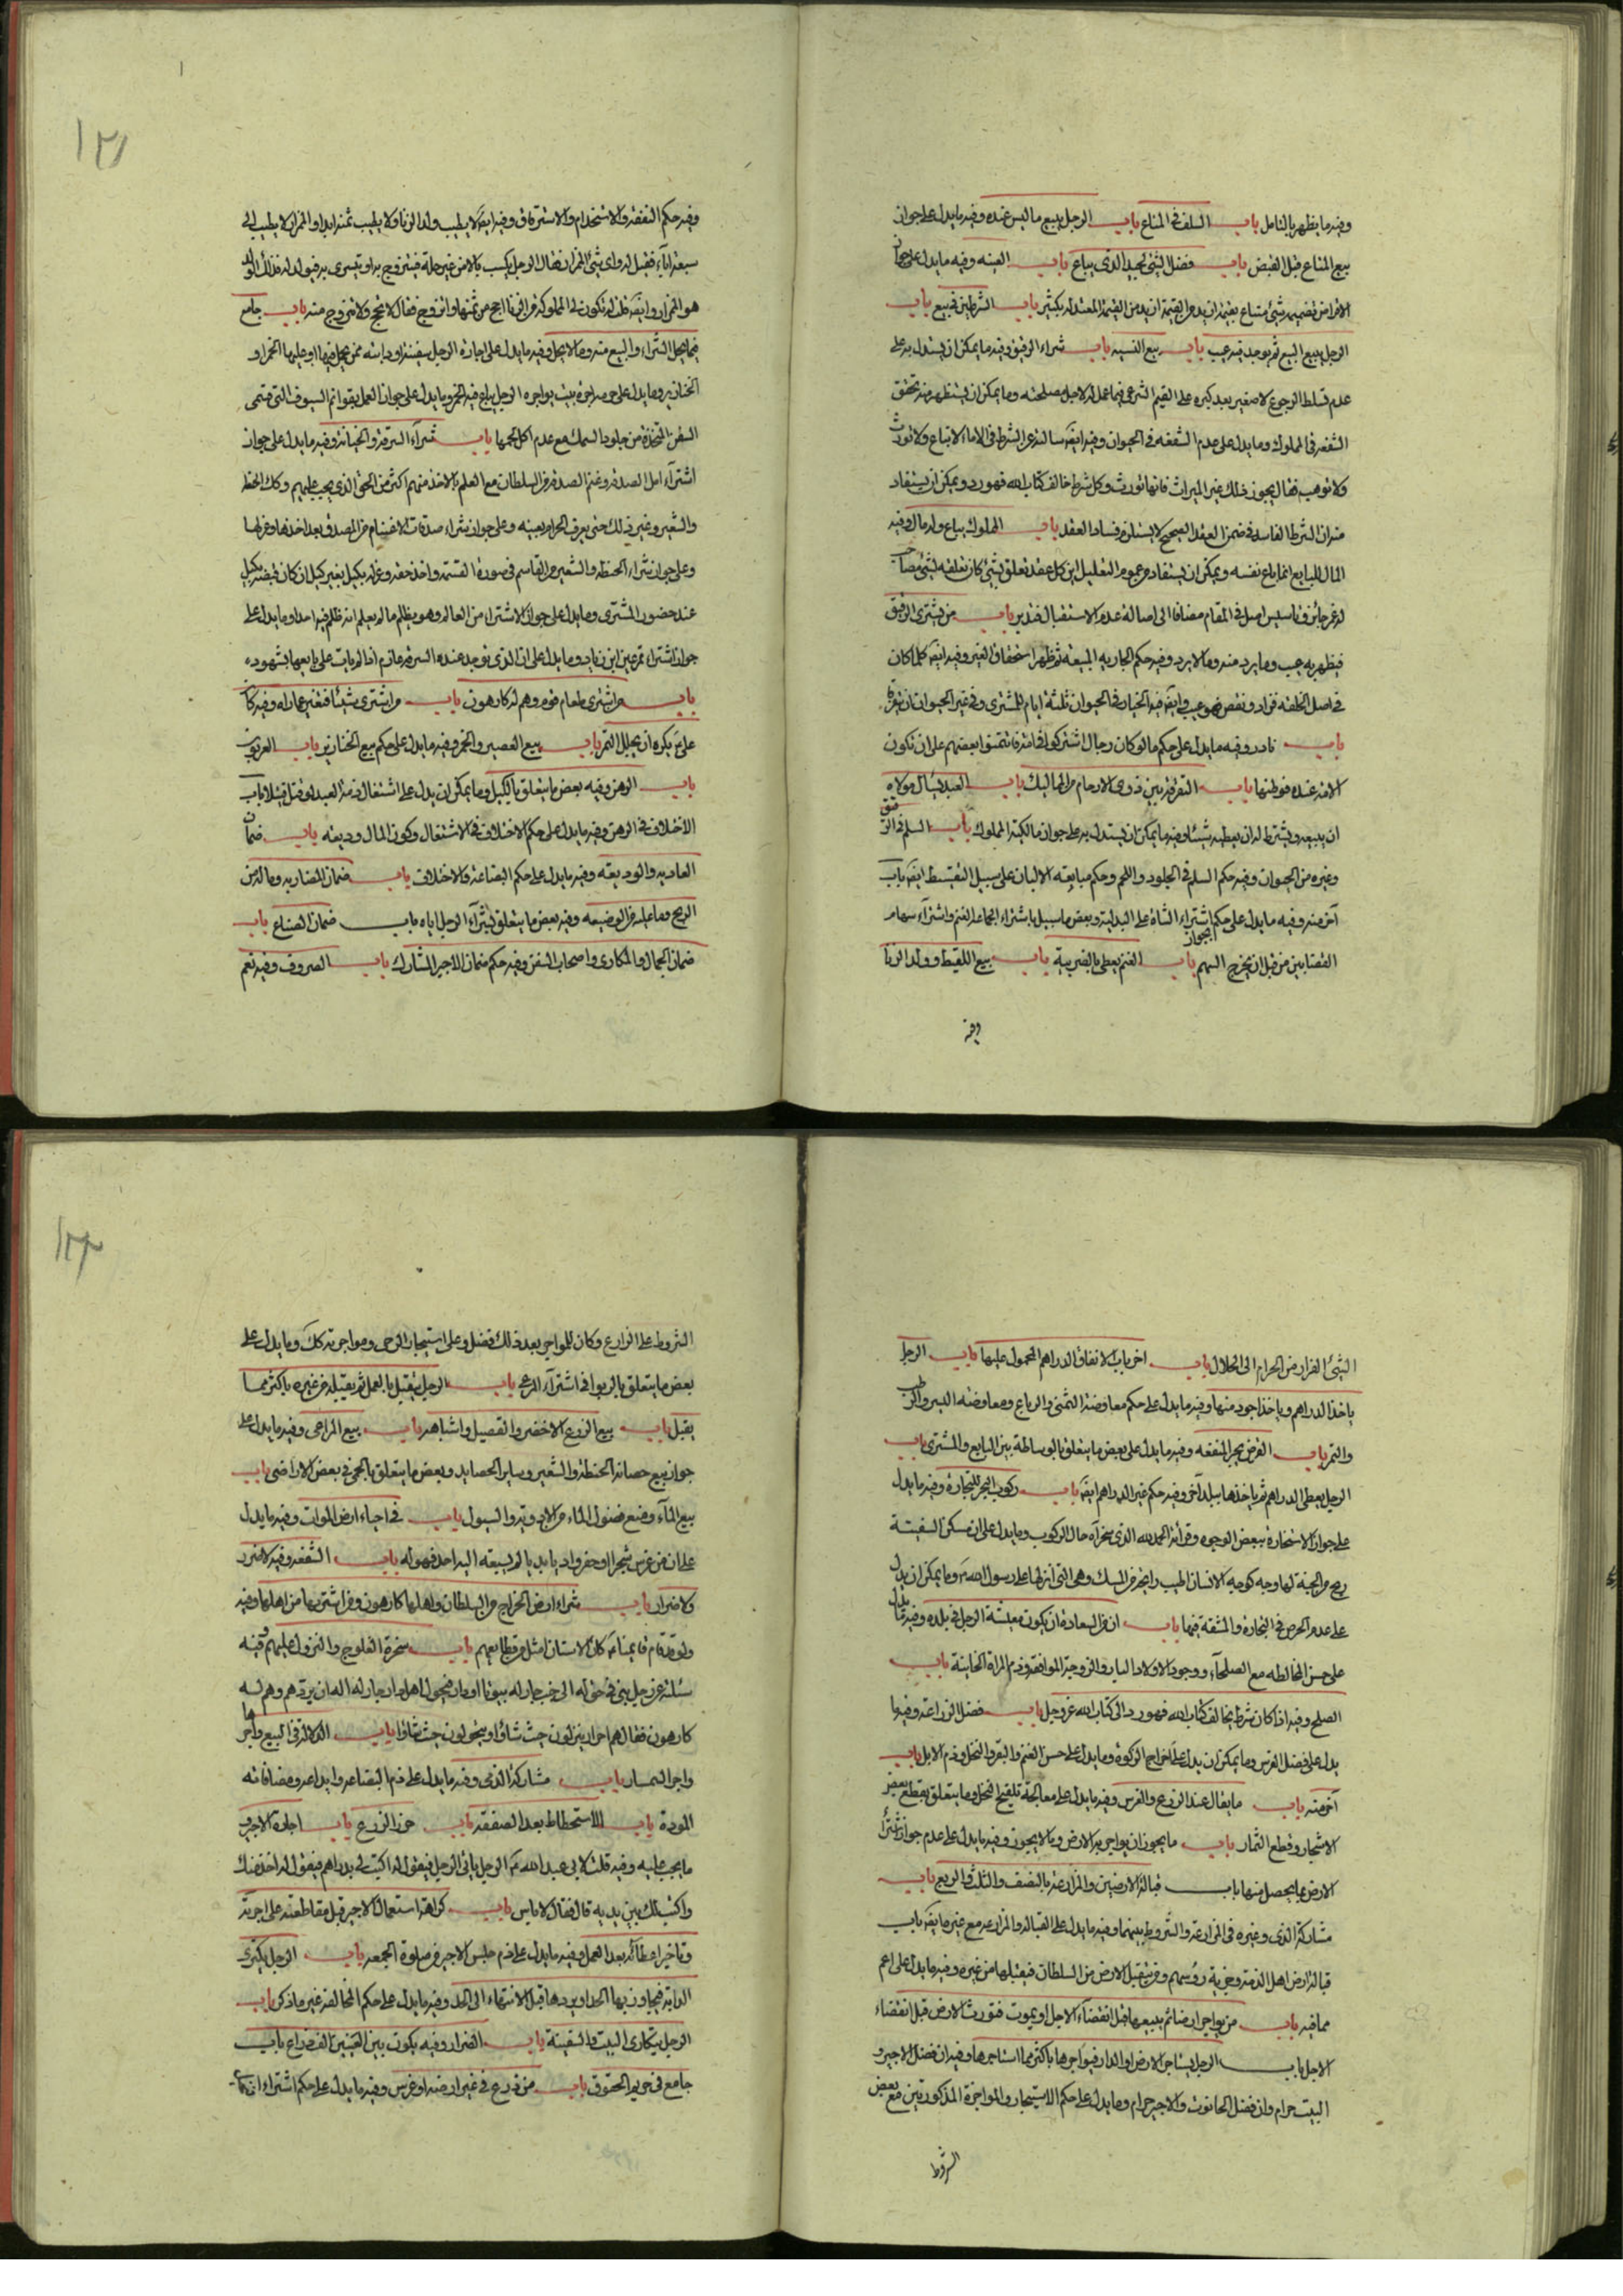 وفيه ما يظهر بالتامل باب السلف في المتاع باب الرجل يبيع ما ليس عنده وفيه ما يدل على جواز
بيع المتاع قبل القبض باب فضل الشئ الجيد الذي يباع باب العينه وفيه ما يدل على
الرجل يبيع البيع ثم يوجد فيه عيب باب بيع النسيه باب شراء الرقيق وفيه ما يمكن ان يستدل به على
عدم تسلط الرجوع للصغير بعد كبره على القيم الشرعي فيما عمل له لاجل مصلحته وما يمكن ان يستظهر منه تحقق
الشفعه في المملوك وما يدل على عدم الشفعه في الحيوان وفيه ايضَ سالته عن الشرط في الاماء لا تباع ولا تورث
ولا توهب فقال يجوز ذلك غير الميراث فانها تورث وكل شرط خالف كتاب الله فهو رد ويمكن ان يستفاد
منه ان الشرط الفاسد في ضمن العقد الصحيح لا يستلزم فساد العقد باب المملوك يباع وله مال وفيه
المال للبايع انما باع نفسه ويمكن ان يستفاد من عموم التعليل
في المقام مضافا الى اصالة عدم الاستقبال فتدبر باب من يشتري الرقيق
فيظهر به عيب وما يرد منه وما لا يرد وفيه حكم الجاريه المبيعه ثم ظهر استحقاق الغير وفيه ايضَ كلما كان
في اصل الخلقه فزاد او نقص فهو عيب وايضَ فيه الخيار في الحيوان ثلثة ايام للمشتري وفي غير الحيوان ان يتفرقا
باب نادر وفيه ما يدل على حكم ما لو كان رجال اشتركوا في امة فائتمنوا بعضهم على ان تكون
الامة عنده فوطئها باب التفرقة بين ذوي الارحام من المماليك باب العبد يسال مولاه
ان يبيعه ويشترط له ان يعطيه شيئا وفيه ما يمكن ان يستدل به على جواز مالكية المملوك باب السلم في الرقيق
وغيره من الحيوان وفيه حكم السلم في الجلود واللحم وحكم مبايعة الالبان على سبيل التقسيط ايضَ باب
آخر منه وفيه ما يدل على حكم اشتراء الشاة على البدلية وبعض ما
القصابين من قبل ان يخرج السهم باب الغنم يعطى بالضريبة باب بيع اللقيط وولد الزنا
وفيه
١٢١
وفيه حكم النفقة والاستخدام والاسترقاق وفيه ايضَ لا يطيب ولد الزنا ولا يطيب ثمنه ابدا والممزاز لا يطيب الى
سبعة آباء فقيل له واي شئ الممزاز فقال الرجل يكسب مالا من غير حله فيتزوج به او يتسرى به فيولد له فذلك الولد
هو الممزاز وايضَ قلت له تكون لي المملوكة من الزنا احج من ثمنها واتزوج فقال لا تحج ولا تتزوج منه باب جامع
فيما يحل الشراء والبيع منه وما لا يحل وفيه ما يدل على اجارة الرجل سفينته او دابته ممن يحمل فيها او عليها الخمر او
الخنازير وما يدل على حرمة اجرة بيت يواجره الرجل يباع فيه الخمر وما يدل على جواز العمل بقوائم السيوف التي تسمى
السفن المتخذة من جلود السمك مع عدم اكل لحمها باب شرآء السرقة والخيانة وفيه ما يدل على جواز
اشترآء ابل الصدقة وغنم الصدقة من السلطان مع العلم بالاخذ منهم اكثر من الحق الذي يجب عليهم وكك الحنطة
والشعير وغير ذلك حتى يعرف الحرام بعينه وعلى جواز شراء صدقات الاغنام من المصدق بعد اخذها وعزلها
وعلى جواز شراء الحنطة والشعير من القاسم في صورة القسمة واخذ حقه وعزله بكيل بغير كيل ان كان قبضه بكيل
عند حضور المشتري وما يدل على جواز الاشتراء من العامل وهو يظلم ما لم يعلم انه ظلم فيه احدا وما يدل على
جواز اشتراء تمر عين ابن زياد وما يدل على ان الذي توجد عنده السرقة غارم اذا لم يات على بايعها بشهود
باب من اشترى طعام قوم وهم له كارهون باب من اشترى شيئا فتغير عما راه وفيه كان
على ع يكره ان يجلل التمر باب بيع العصير والخمر وفيه ما يدل على حكم بيع الخنازير باب العربون
باب الرهن وفيه بعض ما يتعلق بالكيل وما يمكن ان يدل على اشتغال ذمة العبد لو قتل قتيلا باب
الاختلاف في الرهن وفيه ما يدل على حكم الاختلاف في الاشتغال وكون المال وديعه باب ضمان
العاريه والوديعه وفيه ما يدل على حكم البضاعة والاختلاف باب ضمان المضاربه وما له من
الربح وما عليه من الوضيعه وفيه بعض ما يتعلق بشرآء الرجل اباه باب ضمان الصناع باب
ضمان الجمال والمكاري واصحاب السفن وفيه حكم ضمان الاجير المشارك باب الصروف وفيه نعم
الشئ الفرار من الحرام الى الحلال باب اخر باب الانفاق الدراهم المحمول عليها باب الرجل
ياخذ الدراهم وياخذ اجود منها وفيه ما يدل على حكم معاوضة
والتمر باب القرض يجر المنفعه وفيه ما يدل على بعض ما يتعلق بالوساطة بين البايع والمشتري باب
الرجل يعطى الدراهم ثم ياخذها ببلد آخر وفيه حكم غير الدراهم ايضَ باب ركوب البحر للتجارة وفيه ما يدل
على جواز الاستخارة ببعض الوجوه وقرائة الحمد لله الذي سخر آه حال الركوب وما يدل على ان مسكن السفينة
ريح من الجنة لها وجه كوجه الانسان اطيب رايحة من المسك وهي التي انزلها على رسول الله ص وما يمكن ان يدل
على عدم الحرص في التجارة والمشقة فيها باب ان من السعادة ان يكون معيشة الرجل في بلده وفيه ما يدل
على حسن المخالطه مع الصلحآء ووجود الاولاد البار والزوجة الموافقة وذم المراة الخاينة باب
الصلح وفيه اذا كان شرط يخالف كتاب الله فهو رد الى كتاب الله عز وجل باب فضل الزراعة وفيه ما
يدل على فضل الغرس وما يمكن ان يدل على اخراج الزكوة وما يدل على حسن الغنم والبقر والنخل وذم الابل باب
آخر منه باب ما يقال عند الزرع والغرس وفيه ما يدل على معالجة تلقيح النخل وما يتعلق بقطع بعض
الاشجار وقطع الثمار باب ما يجوز ان يواجر به الارض وما لا يجوز وفيه ما يدل على عدم جواز شرآء
الارض بما يحصل منها باب قبالة الارضين والمزارعة بالنصف والثلث والربع باب
مشاركة الذمي وغيره في المزارعة والشروط بينهما وفيه ما يدل على القبالة والمزارعة مع غيره ايضَ باب
قبالة ارض اهل الذمة وجزية رؤسهم ومن يتقبل الارض من السلطان فيقبلها من غيره وفيه ما يدل على اعم
مما فيه باب من يواجر ارضا ثم يبيعها قبل انقضآء الاجل او يموت فتورث الارض قبل انقضاء
الاجل باب الرجل يستاجر الارض او الدار فيواجرها باكثر مما استاجرها وفيه ان فضل الاجير و
البيت حرام وان فضل الحانوت والاجير حرام وما يدل على حكم الاستيجار والمواجرة المذكورتين مع بعض
الشروط
١٢٢
الشروط على الزارع وكان للمواجر بعد ذلك فضل وعلى استيجار الرحى ومواجرته كك وما يدل على
بعض ما يتعلق بالربوا في اشترآء المرعى باب الرجل يتقبل بالعمل ثم يقبله من غيره باكثر مما
يقبل باب بيع الزرع الاخضر والقصيل واشباهه باب بيع المراعي وفيه ما يدل على
جواز بيع حصائد الحنطة والشعير وساير الحصايد وبعض ما يتعلق بالحمى في بعض الاراضي باب
بيع المآء ومنع فضول الماء من الاودية والسيول باب في احياء ارض الموات وفيه ما يدل
على ان من غرس شجرا او حفر واديا بديا لم يسبقه اليه احد فهو له باب الشفعه وفيه لا ضرر
ولا ضرار باب شراء ارض الخراج من السلطان واهلها كارهون ومن اشتريها من اهلها وفيه
ولو قد قام قائمنا ع كان الاستان امثل من قطايعهم باب سخرة العلوج والنزول عليهم وفيه
كارهون فقال هم احرار ينزلون حيث شاؤا ويتحولون حيث شاؤا باب الدلالة في البيع واجرها
واجر السمسار باب مشاركة الذمي وفيه ما يدل على ذم ابضاعه وايداعه ومصافاته
المودة باب الاستحطاط بعد الصفقه باب حزر الزرع باب اجارة الاجير و
ما يجب عليه وفيه قلت لابي عبد الله ع الرجل ياتي الرجل فيقول له اكتب لي بدراهم فيقول له اخذ منك
واكتب لك بين يديه قال فقال لا باس باب كراهة استعمال الاجير قبل مقاطعته على اجرته
وتاخير اعطائه بعد العمل وفيه ما يدل على ذم حبس الاجير من صلوة الجمعه باب الرجل يكتري
الدابة فيجاوز بها الحد او يردها قبل الانتهاء الى الحد وفيه ما يدل على حكم المخالفة غير ما ذكر باب
الرجل يتكارى البيت والسفينة باب الضرار وفيه يكون بين العينين الف ذراع باب
جامع في حريم الحقوق باب من زرع في غير ارضه او غرس وفيه ما يدل على حكم اشتراء